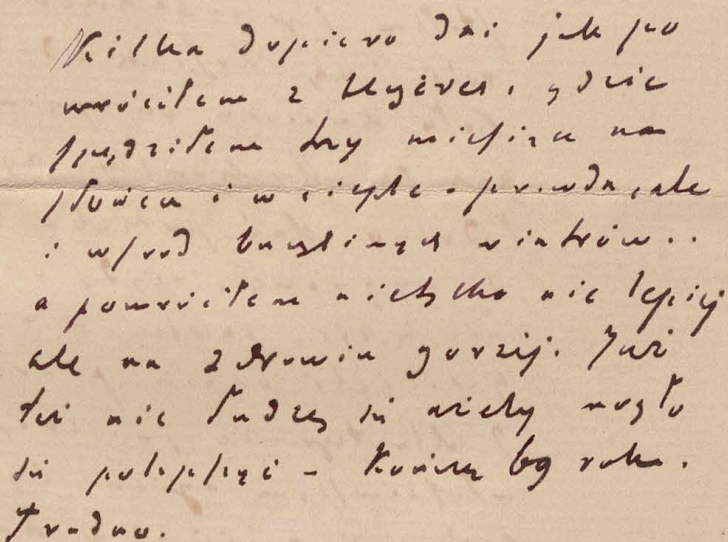 Kilka dopiero dni jak po
wróciłem z Hyères, gdzie
spędziłem trzy miesiące na
słońcu i w cieple - prawda, ale
i wśród burzliwych wiatrów..
a powróciłem nietylko nie lepiej
ale na zdrowiu gorzej. Już
też nie łudzę się ażeby mogło
się polepszyć - kończę 69 roku.
Trudno.